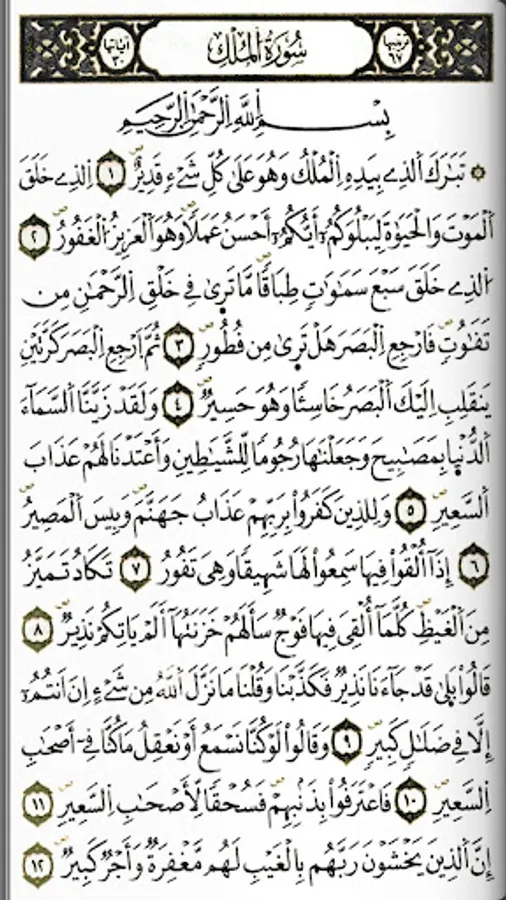 ترتيبها ٦٧ سُورَةُ الْمُلْكِ آياتها ٣٠
بِسْمِ اِللَّهِ اِلرَّحْمَٰنِ اِلرَّحِيمِ
۞ تَبَٰرَكَ اَلذِے بِيَدِهِ اِلْمُلْكُ وَهُوَ عَلَىٰ كُلِّ شَےْءٖ قَدِيرٌ ١ اِلذِے خَلَقَ
اَلْمَوْتَ وَالْحَيَوٰةَ لِيَبْلُوَكُمُۥٓ أَيُّكُمُۥٓ أَحْسَنُ عَمَلاٗ وَهُوَ اَلْعَزِيزُ اُلْغَفُورُ ٢
اُلذِے خَلَقَ سَبْعَ سَمَٰوَٰتٖ طِبَاقاٗ مَّا تَرٜىٰ فِے خَلْقِ اِلرَّحْمَٰنِ مِن
تَفَٰوُتٖ فَارْجِعِ اِلْبَصَرَ هَلْ تَرٜىٰ مِن فُطُورٖ ٣ ثُمَّ اَرْجِعِ اِلْبَصَرَ كَرَّتَيْنِ
يَنقَلِبِ اِلَيْكَ اَلْبَصَرُ خَاسِئاٗ وَهُوَ حَسِيرٌ ٤ وَلَقَدْ زَيَّنَّا اَلسَّمَآءَ
اَلدُّنْيٜا بِمَصَٰبِيحَ وَجَعَلْنَٰهَا رُجُوماٗ لِّلشَّيَٰطِينِ وَأَعْتَدْنَا لَهُمْ عَذَابَ
اَلسَّعِيرِ ٥ وَلِلذِينَ كَفَرُواْ بِرَبِّهِمْ عَذَابُ جَهَنَّمَ وَبِيسَ اَلْمَصِيرُ
٦ إِذَآ أُلْقُواْ فِيهَا سَمِعُواْ لَهَا شَهِيقاٗ وَهِيَ تَفُورُ ٧ تَكَادُ تَمَيَّزُ
مِنَ اَلْغَيْظِ كُلَّمَآ أُلْقِيَ فِيهَا فَوْجٞ سَأَلَهُمْ خَزَنَتُهَآ أَلَمْ يَاتِكُمْ نَذِيرٞ ٨
قَالُواْ بَلٜىٰ قَدْ جَآءَنَا نَذِيرٞ فَكَذَّبْنَا وَقُلْنَا مَا نَزَّلَ اَللَّهُ مِن شَےْءٍ اِنَ اَنتُمُۥٓ
إِلَّا فِے ضَلَٰلٖ كَبِيرٖ ٩ وَقَالُواْ لَوْ كُنَّا نَسْمَعُ أَوْ نَعْقِلُ مَا كُنَّا فِےٓ أَصْحَٰبِ
اِلسَّعِيرِ ١٠ فَاعْتَرَفُواْ بِذَنۢبِهِمْ فَسُحْقاٗ لِّأَصْحَٰبِ اِلسَّعِيرِ ١١
إِنَّ اَلذِينَ يَخْشَوْنَ رَبَّهُم بِالْغَيْبِ لَهُم مَّغْفِرَةٞ وَأَجْرٞ كَبِيرٞ ١٢